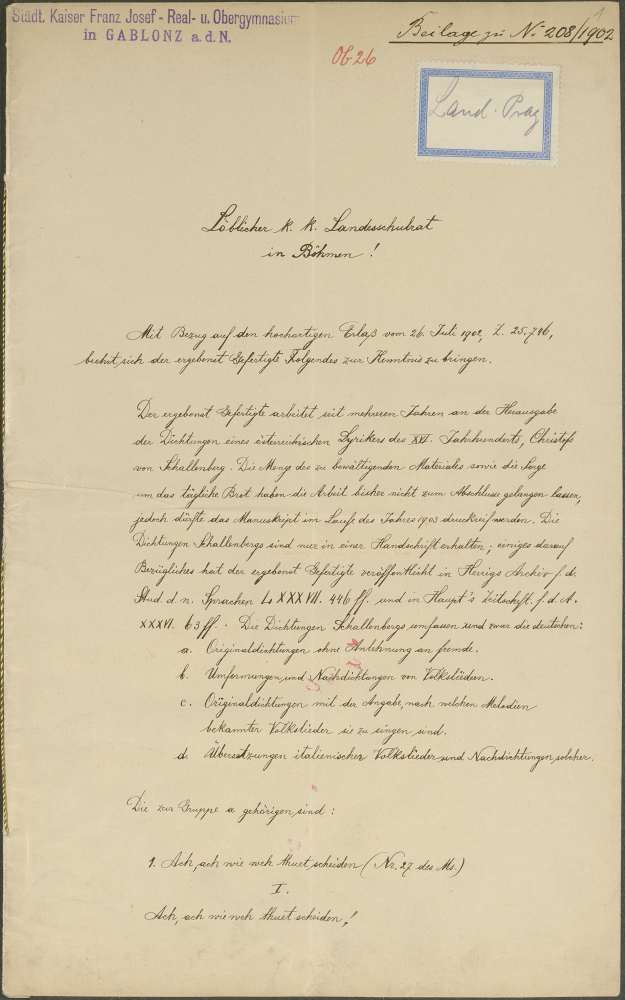 Städt. Kaiser Franz Josef - Real- u. Obergymnasium
in GABLONZ a.d.N.
Beilage zu No 208/1902
Ob 26
Land. Prag
Löblicher k. k. Landesschulrat
in Böhmen!
Mit Bezug auf den hochortigen Erlaß vom 26. Juli 1902, Z. 25.746,
beehrt sich der ergebenst Gefertigte Folgendes zur Kenntnis zu bringen.
Der ergebenst Gefertigte arbeitet seit mehreren Jahren an der Herausgabe
der Dichtungen eines österreichischen Lyrikers des XVI. Jahrhunderts, Christofs
von Schallenberg. Die Menge des zu bewältigenden Materiales sowie die Sorge
um das tägliche Brot haben die Arbeit bisher nicht zum Abschlusse gelangen lassen,
jedoch dürfte das Manuskript im Laufe des Jahres 1903 druckreif werden. Die
Dichtungen Schallenbergs sind nur in einer Handschrift erhalten; einiges darauf
Bezügliches hat der ergebenst Gefertigte veröffentlicht in Herrigs Archiv f. d.
Stud. d. n. Sprachen XXXVII. 446 ff. und in Haupt's Zeitschft. f. d. A.
XXXVI. 63 ff. - Die Dichtungen Schallenbergs umfassen und zwar die deutschen:
a. Originaldichtungen ohne Anlehnung an fremde.
b. Umformungen und Nachdichtungen von Volksliedern.
c. Originaldichtungen mit der Angabe, nach welchen Melodien
bekannter Volkslieder sie zu singen sind.
d. Übersetzungen italienischer Volkslieder und Nachdichtungen solcher.
Die zur Gruppe a gehörigen sind:
1. Ach, ach wie weh thuet scheiden (Nr. 27 des Ms.)
I.
Ach, ach wie weh thuet scheiden!